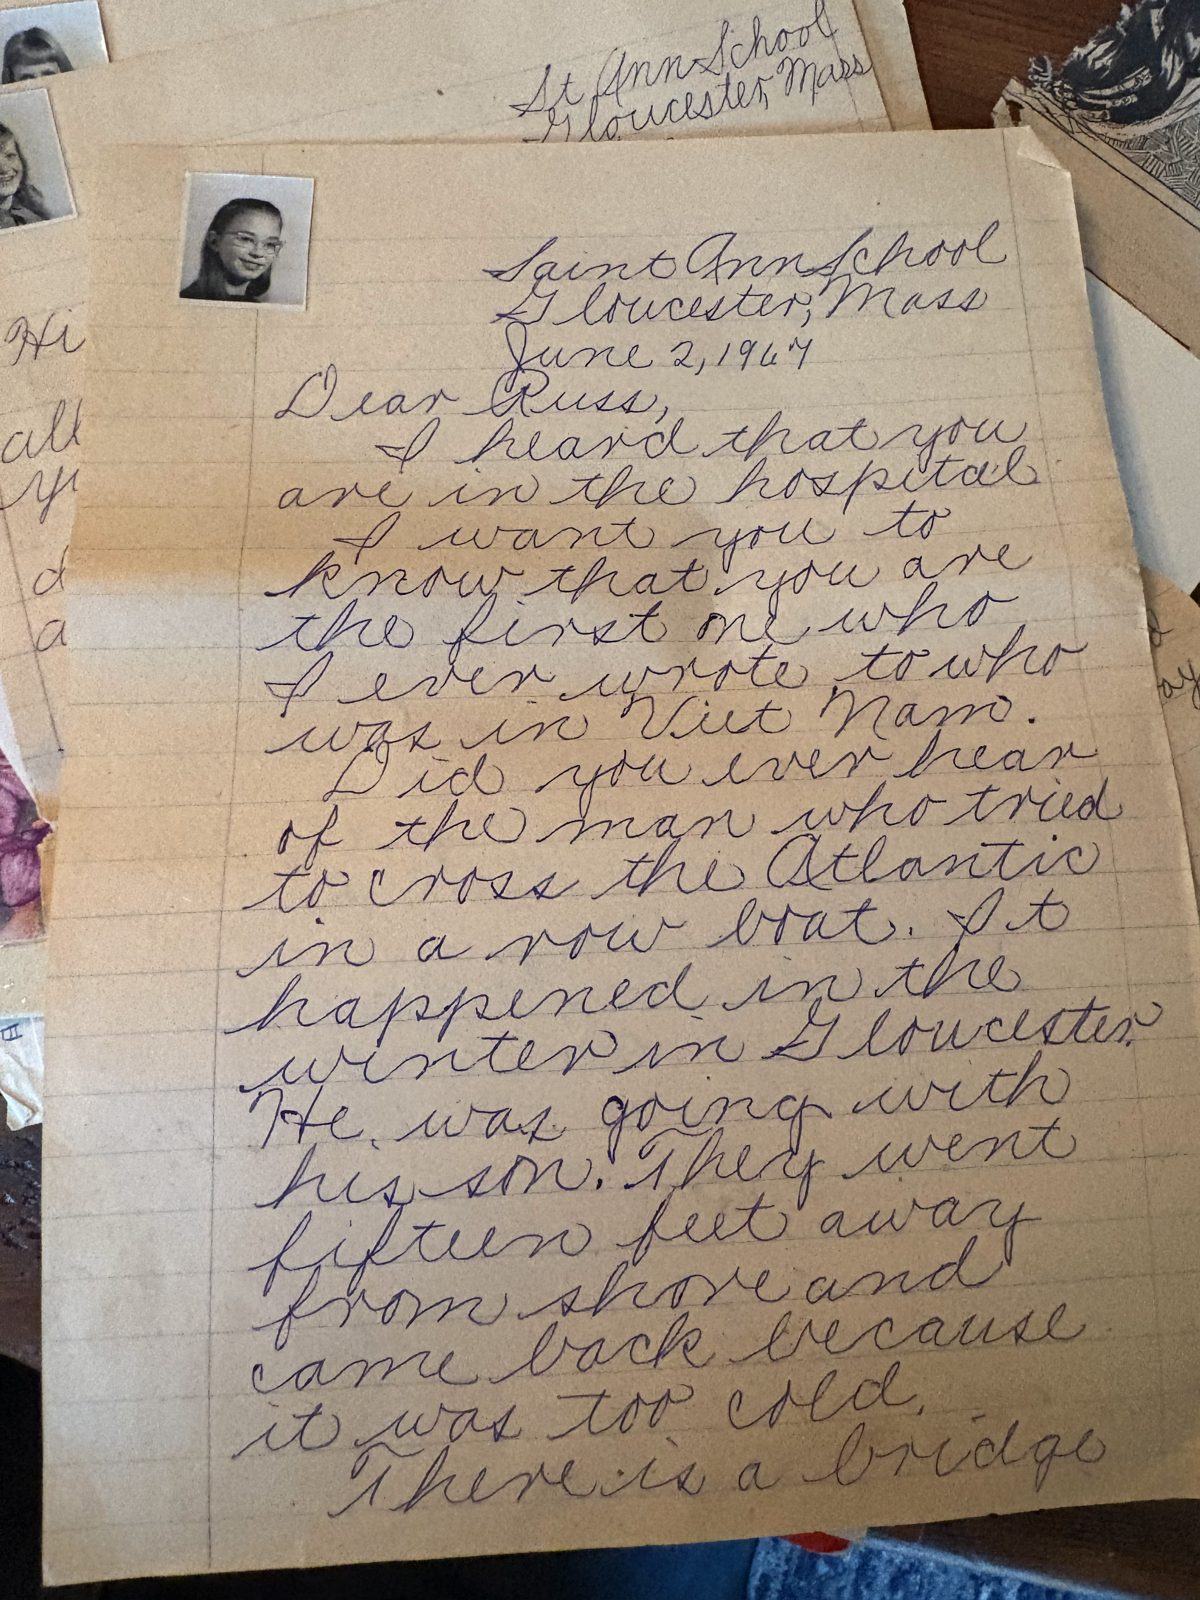 St Ann School
Gloucester, Mass
Saint Ann School
Gloucester, Mass
June 2, 1967
Dear Russ,
I heard that you
are in the hospital.
I want you to
know that you are
the first one who
I ever wrote to who
was in Viet Nam.
Did you ever hear
of the man who tried
to cross the Atlantic
in a row boat. It
happened in the
winter in Gloucester.
He was going with
his son. They went
fifteen feet away
from shore and
came back because
it was too cold.
There is a bridge
Hi
all